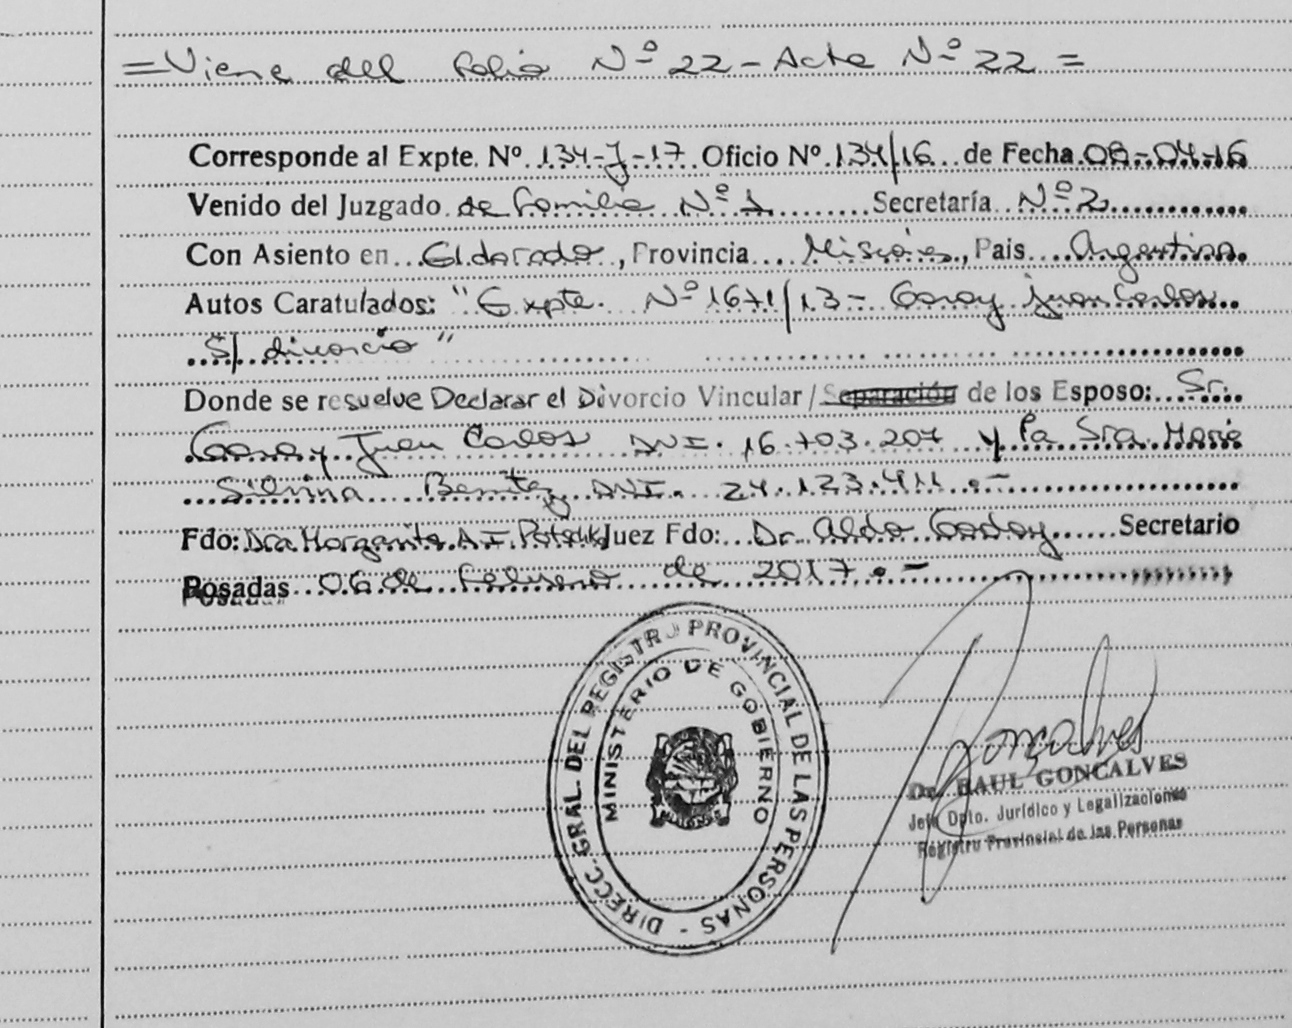 =Viene del folio Nº 22 - Acta Nº 22 =
Corresponde al Expte. Nº 134-J-17 Oficio Nº 134/16 de Fecha 08-04-16
Venido del Juzgado de Familia Nº 1 Secretaría Nº 2
Con Asiento en Eldorado, Provincia Misiones, País Argentina
Autos Caratulados: "Expte. Nº 1671/13 - Garay Juan Carlos
S/ divorcio"
Donde se resuelve Declarar el Divorcio Vincular / Separación de los Esposo: Sr.
Garay Juan Carlos DNI. 16.703.207 y la Sra. María
Silvina Benitez DNI. 24.123.411.-
Fdo: Dra Margarita A. I. Juez Fdo: Dr. Aldo Godoy Secretario
Posadas 06 de Febrero de 2017.-
DIRECC. GRAL. DEL REGISTRO PROVINCIAL DE LAS PERSONAS -
MINISTERIO DE GOBIERNO
MISIONES
Goncalves
Dr. RAUL GONCALVES
Jefe Dpto. Jurídico y Legalizaciones
Registro Provincial de las Personas